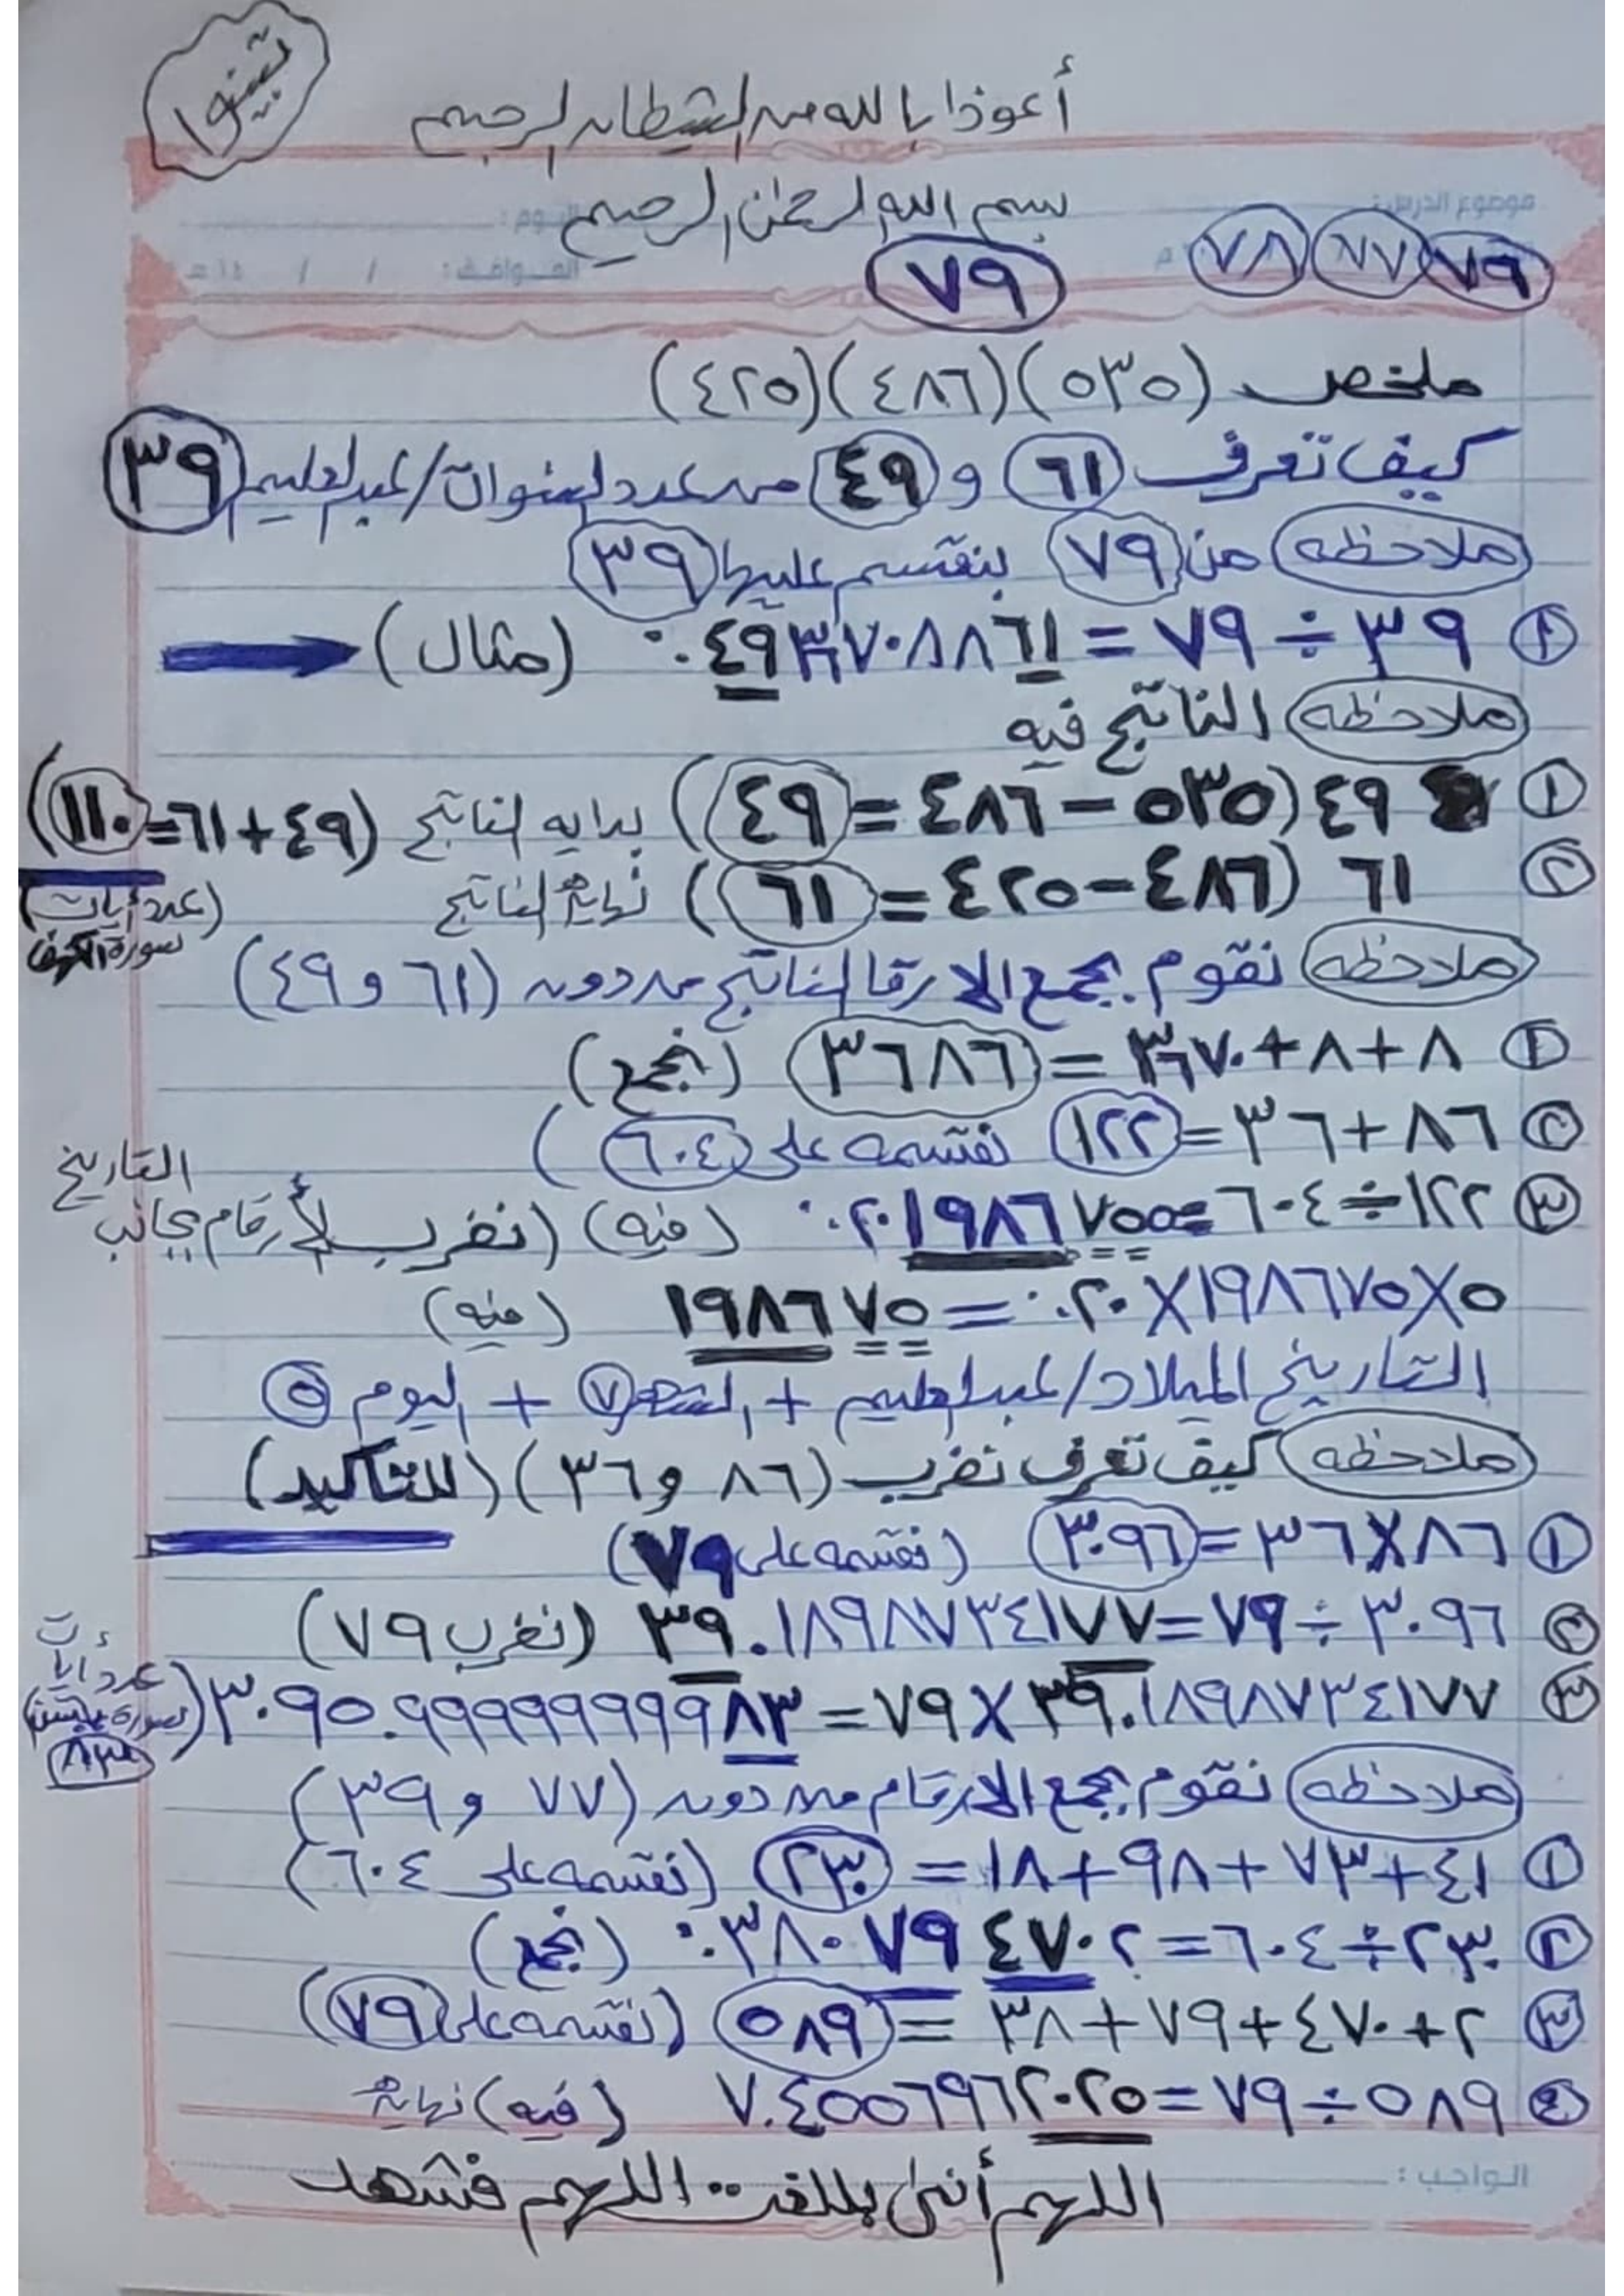 تبينوا
أعوذ بالله من الشيطان الرجيم
بسم الله الرحمن الرحيم
موضوع الدرس:
اليوم:
٧٩ ٧٧ ٧٨
م
الموافق: / / ١٤هـ
٧٩
ملخص (٥٣٥)(٤٨٦)(٤٢٥)
كيف تعرف ٦١ و ٤٩ من عدد السنوات/عبدالعليم ٣٩
ملاحظه من ٧٩ بنقسم عليها ٣٩
① ٣٩ ÷ ٧٩ = ٠.٤٩٣٦٧٠٨٨٦١ (مثال)
ملاحظه الناتج فيه
① ٤٩ (٥٣٥ − ٤٨٦ = ٤٩) بدايه الناتج (٤٩+٦١=١١٠)
② ٦١ (٤٨٦ − ٤٢٥ = ٦١) نهاية الناتج
(عدد أيات
سورة الكهف
ملاحظه نقوم بجمع الارقا الناتج من دون (٦١ و ٤٩)
① ٨+٨+٣٦٧٠ = ٣٦٨٦ (نجمع)
② ٨٦+٣٦=١٢٢ نقسمه على ٦٠٤)
③ ١٢٢÷٦٠٤=٠.٢٠١٩٨٦٧٥٥ (فيه) (نضرب الأرقام بجانب
التاريخ
٥×١٩٨٦٧٥×٠.٢٠ = ١٩٨٦٧٥ (فيه)
التاريخ الميلاد/عبدالعليم + الشهر ٧ + اليوم ٥
ملاحظه كيف تعرف نضرب (٨٦ و ٣٦) (للتأكيد)
① ٨٦×٣٦=٣٠٩٦ (نقسمه على ٧٩)
② ٣٠٩٦÷٧٩=٣٩.١٨٩٨٧٣٤١٧٧ (نضرب ٧٩)
③ ٣٩.١٨٩٨٧٣٤١٧٧×٧٩=٣٠٩٥.٩٩٩٩٩٩٩٩٨٣
(عدد أيات
٨٣
ملاحظه نقوم بجمع الارقام من دون (٧٧ و ٣٩)
① ٤١+٧٣+٩٨+١٨ = ٢٣٠ (نقسمه على ٦٠٤)
② ٢٣٠÷٦٠٤=٠.٣٨٠٧٩٤٧٠٢ (نجمع)
③ ٢+٤٧٠+٧٩+٣٨ = ٥٨٩ (نقسمه على ٧٩)
④ ٥٨٩÷٧٩=٧.٤٥٥٦٩٦٢٠٢٥ (فيه) نهاية
الواجب:
اللهم أنني بلغت .. اللهم فشهد